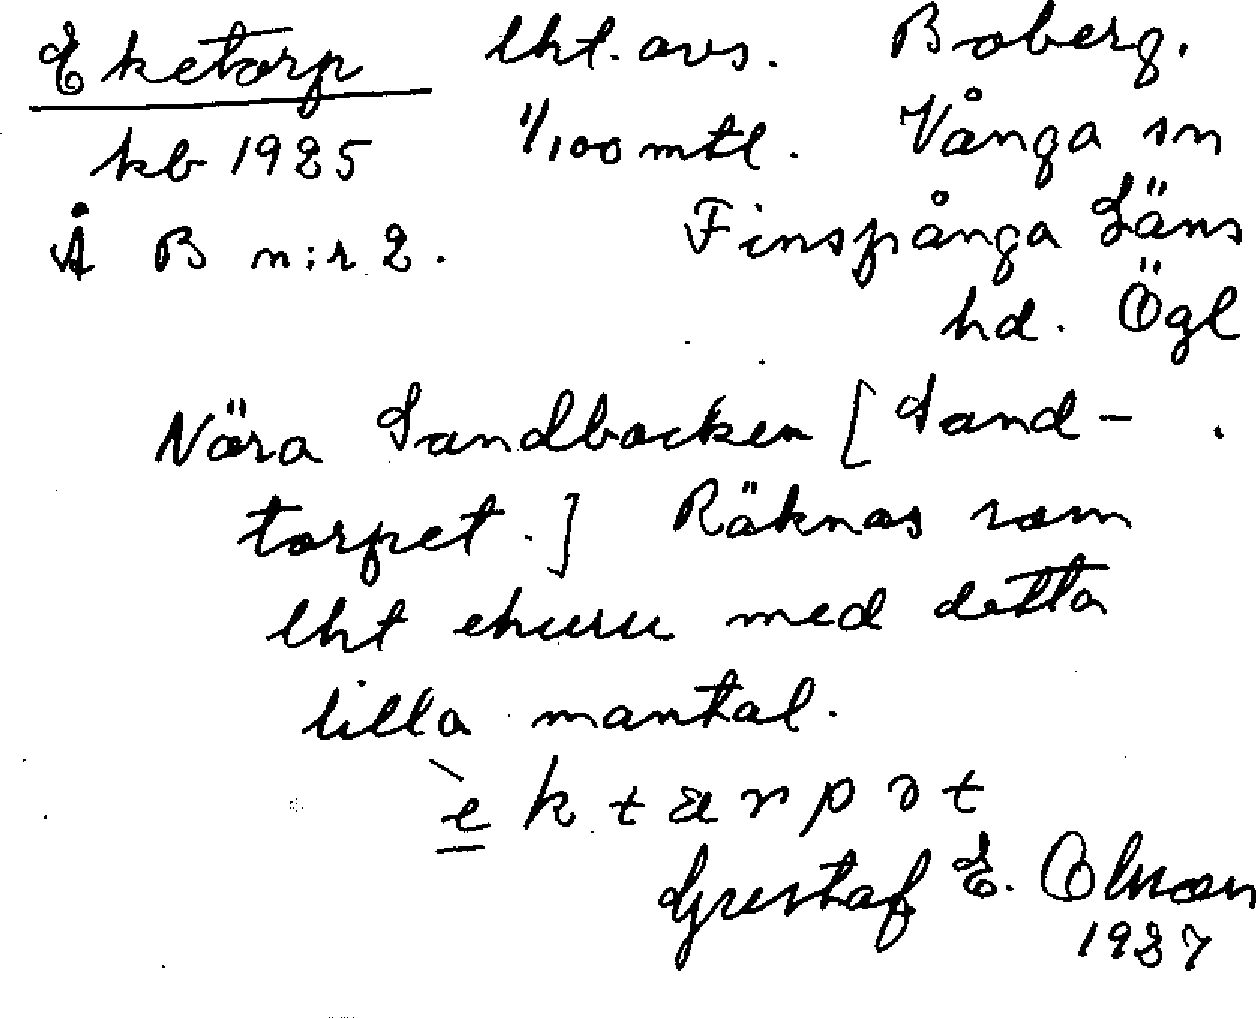 Eketorp lht. avs. Boberg.
kb 1925 1/100 mtl. Vånga sn
Å B n:r 2. Finspånga Läns
hd. Ögl
Nära Sandbacken [Sand-
torpet.] Räknas som
lht ehuru med detta
lilla mantal.
è k t æ r p ə t
Gustaf E. Olsson
1927